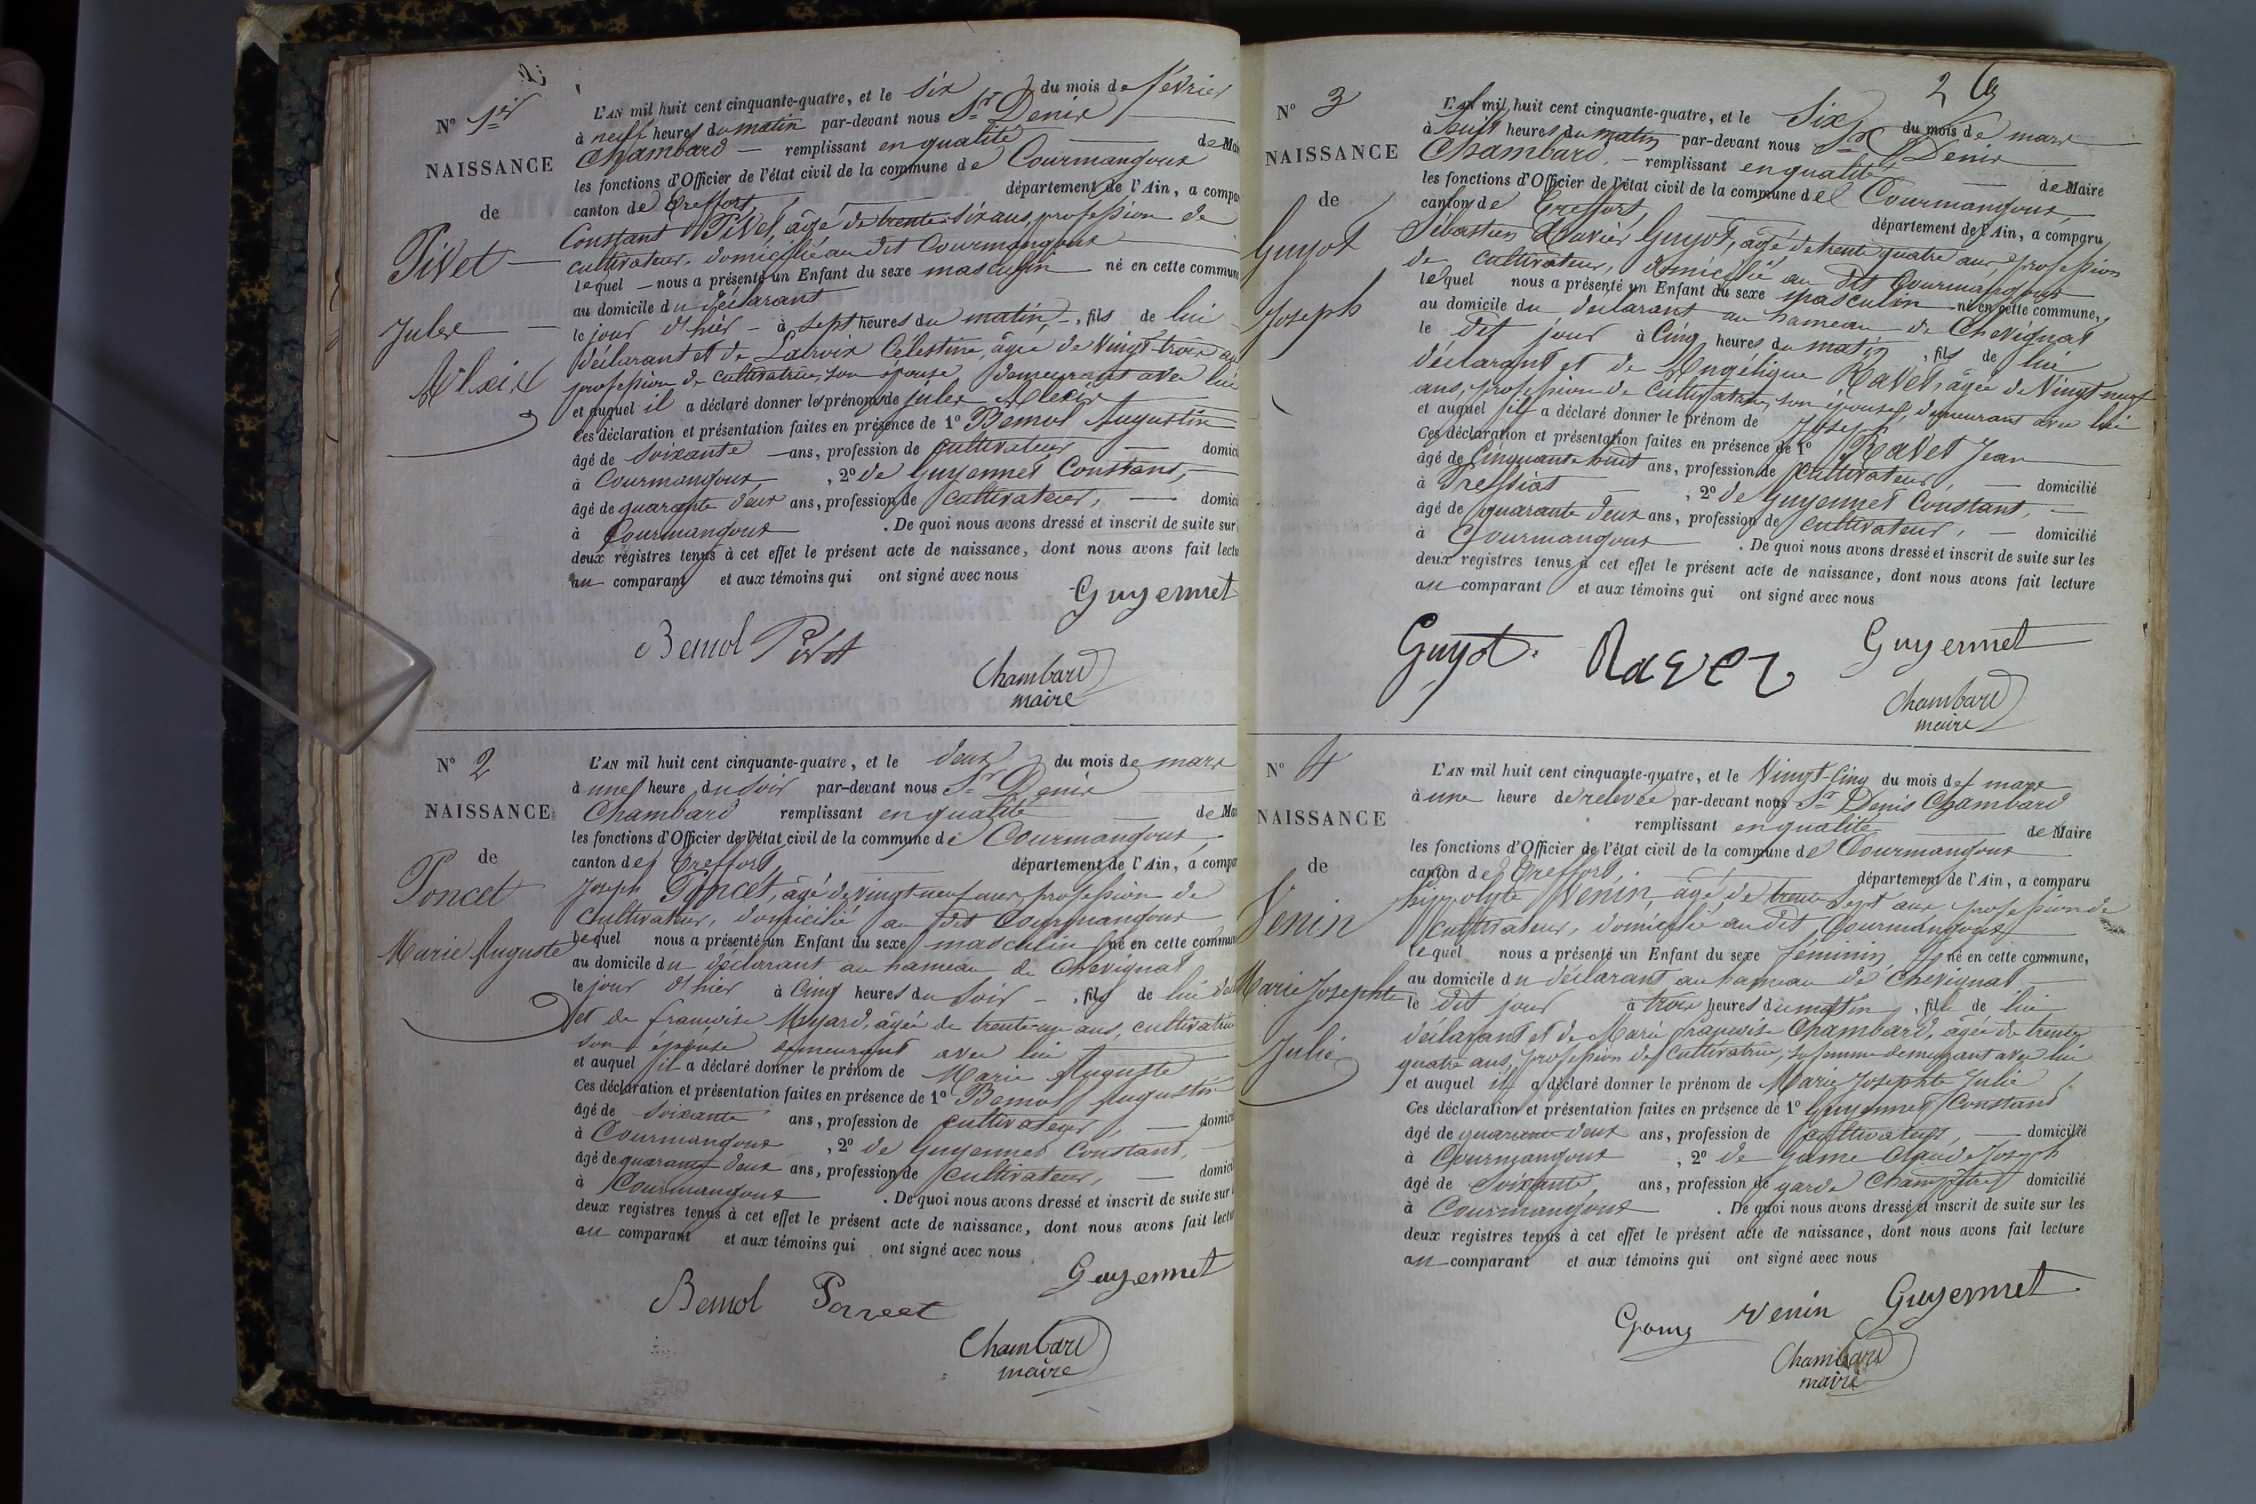 N° 1er
NAISSANCE
de
Pivet
Jules
Alexis
L'AN mil huit cent cinquante-quatre, et le six du mois de février
à neuf heures du matin par-devant nous St Denis
Chambard — remplissant en qualité de Mai
les fonctions d'Officier de l'état civil de la commune de Courmangoux
canton de Treffort, département de l'Ain, a compa
Constant Pivet, âgé de trente six ans, profession de
cultivateur, domicilié au dit Courmangoux
lequel — nous a présenté un Enfant du sexe masculin né en cette commune
au domicile du déclarant
le jour d'hier — à sept heures du matin, fils de lui
déclarant et de Lacroix Célestine, âgée de vingt-trois ans
profession de cultivatrice, son épouse, demeurant avec lui
et auquel il a déclaré donner les prénoms de jules Alexis
Ces déclaration et présentation faites en présence de 1° Bémol Augustin
âgé de soixante — ans, profession de cultivateur — domici
à Courmangoux, 2° de Guyennet Constant,
âgé de quarante deux ans, profession de cultivateur, — domici
à Courmangoux . De quoi nous avons dressé et inscrit de suite sur
deux registres tenus à cet effet le présent acte de naissance, dont nous avons fait lectu
au comparant et aux témoins qui ont signé avec nous
Guyennet
Bemol Pivet
Chambard
maire
N° 2
NAISSANCE
de
Poncet
Marie Auguste
L'AN mil huit cent cinquante-quatre, et le deux du mois de mars
à une heure du soir par-devant nous St Denis
Chambard remplissant en qualité de Mai
les fonctions d'Officier de l'état civil de la commune de Courmangoux,
canton de Treffort département de l'Ain, a compa
Joseph Poncet, âgé de vingt neuf ans, profession de
cultivateur, domicilié au dit Courmangoux
lequel nous a présenté un Enfant du sexe masculin né en cette commun
au domicile du déclarant au hameau de Chevignat
le jour d'hier à cinq heures du soir — , fils de lui décl
et de françoise Myard, âgée de trente-un ans, cultivatrice
son épouse demeurant avec lui
et auquel il a déclaré donner le prénom de Marie Auguste
Ces déclaration et présentation faites en présence de 1° Bemol Augustin
âgé de soixante ans, profession de cultivateur, — domici
à Courmangoux, 2° de Guyennet Constant,
âgé de quarante deux ans, profession de cultivateur, — domici
à Courmangoux . De quoi nous avons dressé et inscrit de suite sur
deux registres tenus à cet effet le présent acte de naissance, dont nous avons fait lectu
au comparant et aux témoins qui ont signé avec nous
Guyennet
Bemol Poncet
Chambard
maire
2
N° 3
NAISSANCE
de
Guyot
Joseph
L'AN mil huit cent cinquante-quatre, et le six du mois de mars
à huit heures du matin par-devant nous St Denis
Chambard, — remplissant en qualité de Maire
les fonctions d'Officier de l'état civil de la commune de Courmangoux,
canton de Treffort, département de l'Ain, a comparu
Sébastien Xavier Guyot, âgé de trente quatre ans, profession
de cultivateur, domicilié au dit Courmangoux
lequel nous a présenté un Enfant du sexe masculin né en cette commune,
au domicile du déclarant au hameau de Chevignat
le dit jour à cinq heures du matin, fils de lui
déclarant et de Angélique Ravet, âgée de vingt neuf
ans, profession de cultivatrice, son épouse, demeurant avec lui
et auquel il a déclaré donner le prénom de Joseph
Ces déclaration et présentation faites en présence de 1° Ravet Jean
âgé de cinquante huit ans, profession de cultivateur, — domicilié
à Pressiat, 2° de Guyennet Constant,
âgé de quarante deux ans, profession de cultivateur, — domicilié
à Courmangoux . De quoi nous avons dressé et inscrit de suite sur les
deux registres tenus à cet effet le présent acte de naissance, dont nous avons fait lecture
au comparant et aux témoins qui ont signé avec nous
Guyot. Ravet Guyennet
Chambard
maire
N° 4
NAISSANCE
de
Venin
Marie Josephte
Julie
L'AN mil huit cent cinquante-quatre, et le vingt-cinq du mois de mars
à une heure de relevée par-devant nous St Denis Chambard
remplissant en qualité de Maire
les fonctions d'Officier de l'état civil de la commune de Courmangoux
canton de Treffort, département de l'Ain, a comparu
hippolyte Venin, âgé de trente sept ans profession de
cultivateur, domicilié au dit Courmangoux
lequel nous a présenté un Enfant du sexe féminin, né en cette commune,
au domicile du déclarant au hameau de Chevignat
le dit jour à trois heures du matin, fille de lui
déclarant et de Marie françoise Chambard, âgée de trente
quatre ans, profession de cultivatrice, sa femme demeurant avec lui
et auquel il a déclaré donner le prénom de Marie Josephte Julie
Ces déclaration et présentation faites en présence de 1° Guyennet Constant
âgé de quarante deux ans, profession de cultivateur, — domicilié
à Courmangoux, 2° de Game Claude Joseph
âgé de soixante ans, profession de garde champêtre domicilié
à Courmangoux . De quoi nous avons dressé et inscrit de suite sur les
deux registres tenus à cet effet le présent acte de naissance, dont nous avons fait lecture
au comparant et aux témoins qui ont signé avec nous
venin Guyennet
Chambard
maire